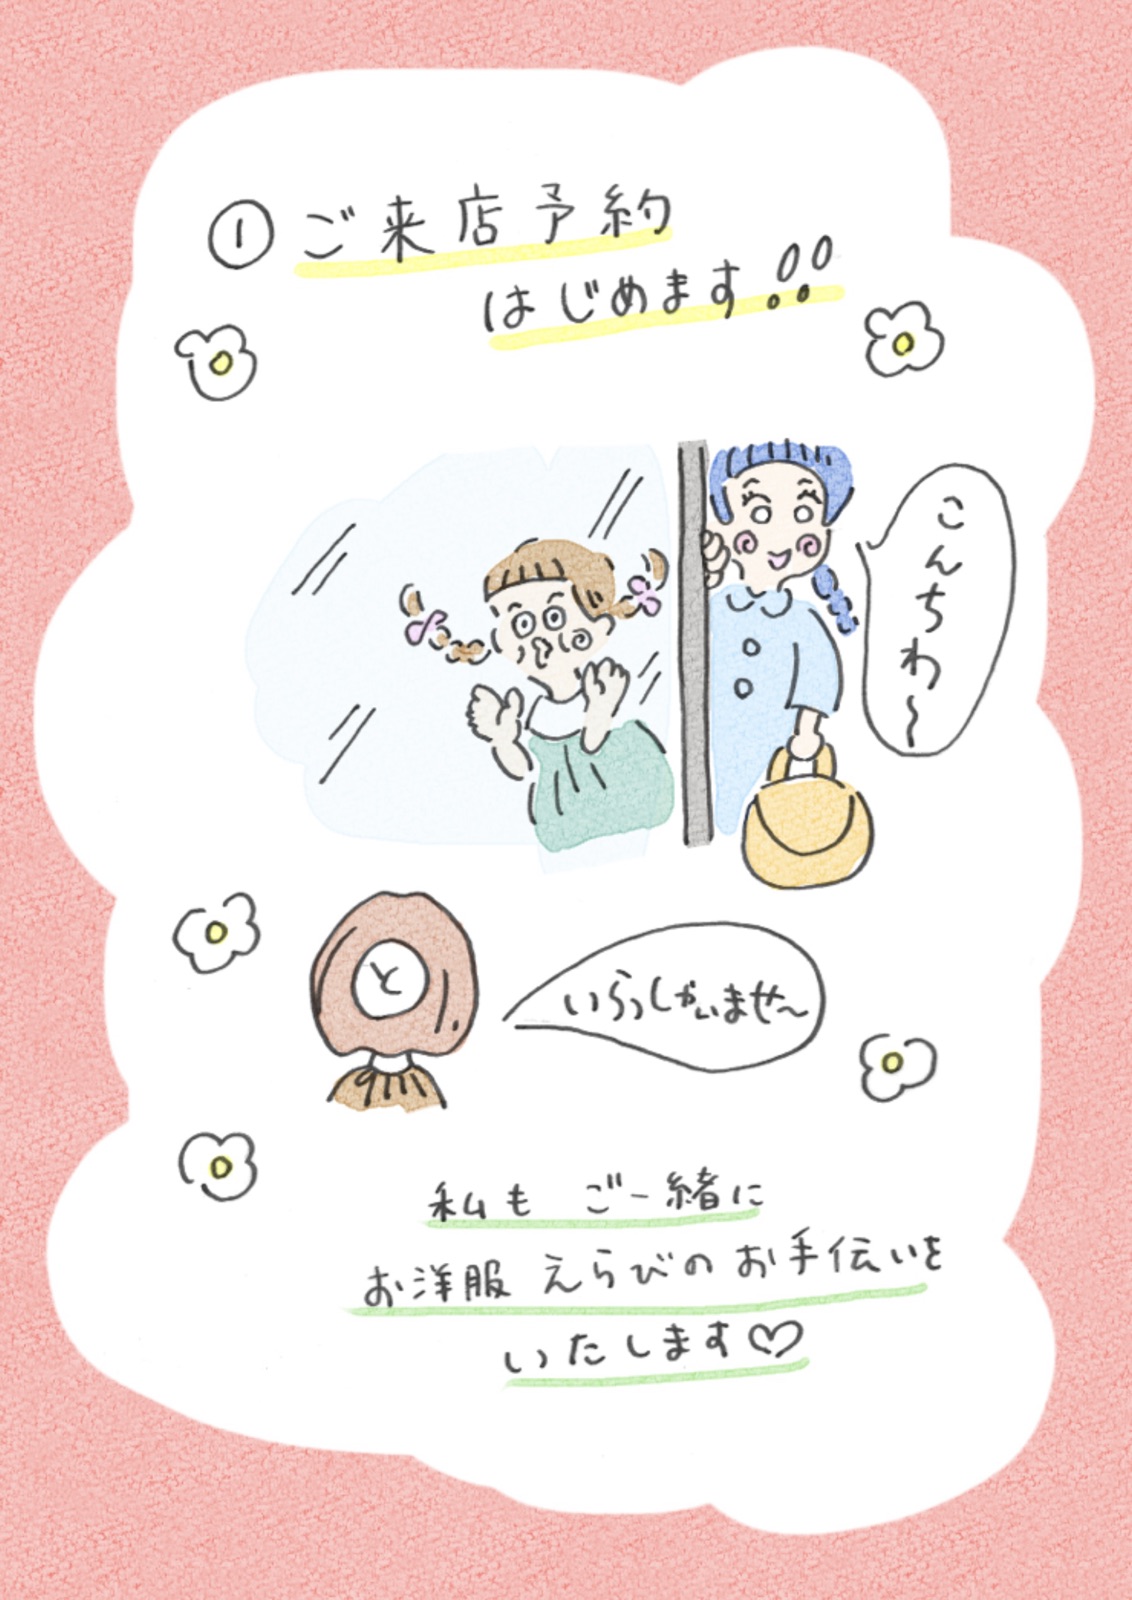 ① ご来店予約
はじめます!!
こんちわ〜
と
いらっしゃいませ〜
私も ご一緒に
お洋服 えらびの お手伝いを
いたします♡